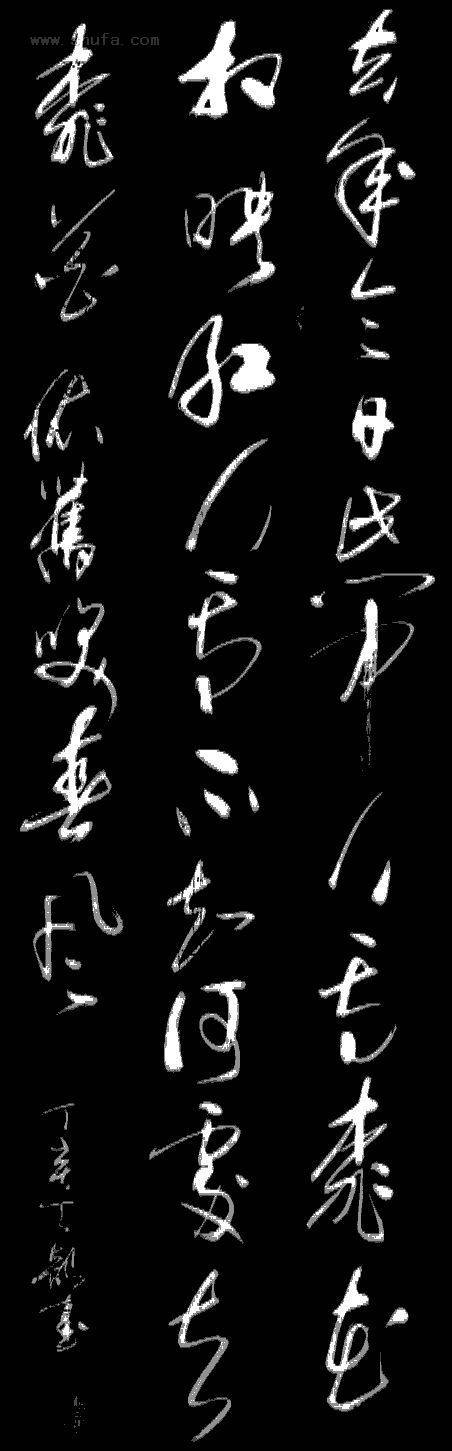 www.shufa.com
去年今日此門中人面桃花
相映紅人面不知何處去
桃花依舊咲春風
丁亥丁書